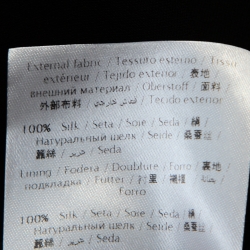 External fabric / Tessuto esterno / Tissu
extérieur / Tejido exterior / 表地
внешний материал / Oberstoff / 面料
外部布料 /
100% Silk / Seta / Soie / Seda / 絹 /
Натуральный шелк / Seide / 桑蚕丝
/ 蠶絲 / حرير / Seda
Lining / Fodera / Doublure / Forro / 裏地 /
подкладка / Futter / 衬里 / 襯裡 /
Forro
100% Silk / Seta / Soie / Seda / 絹 /
Натуральный шелк / Seide / 桑蚕丝
/ 蠶絲 / حرير / Seda